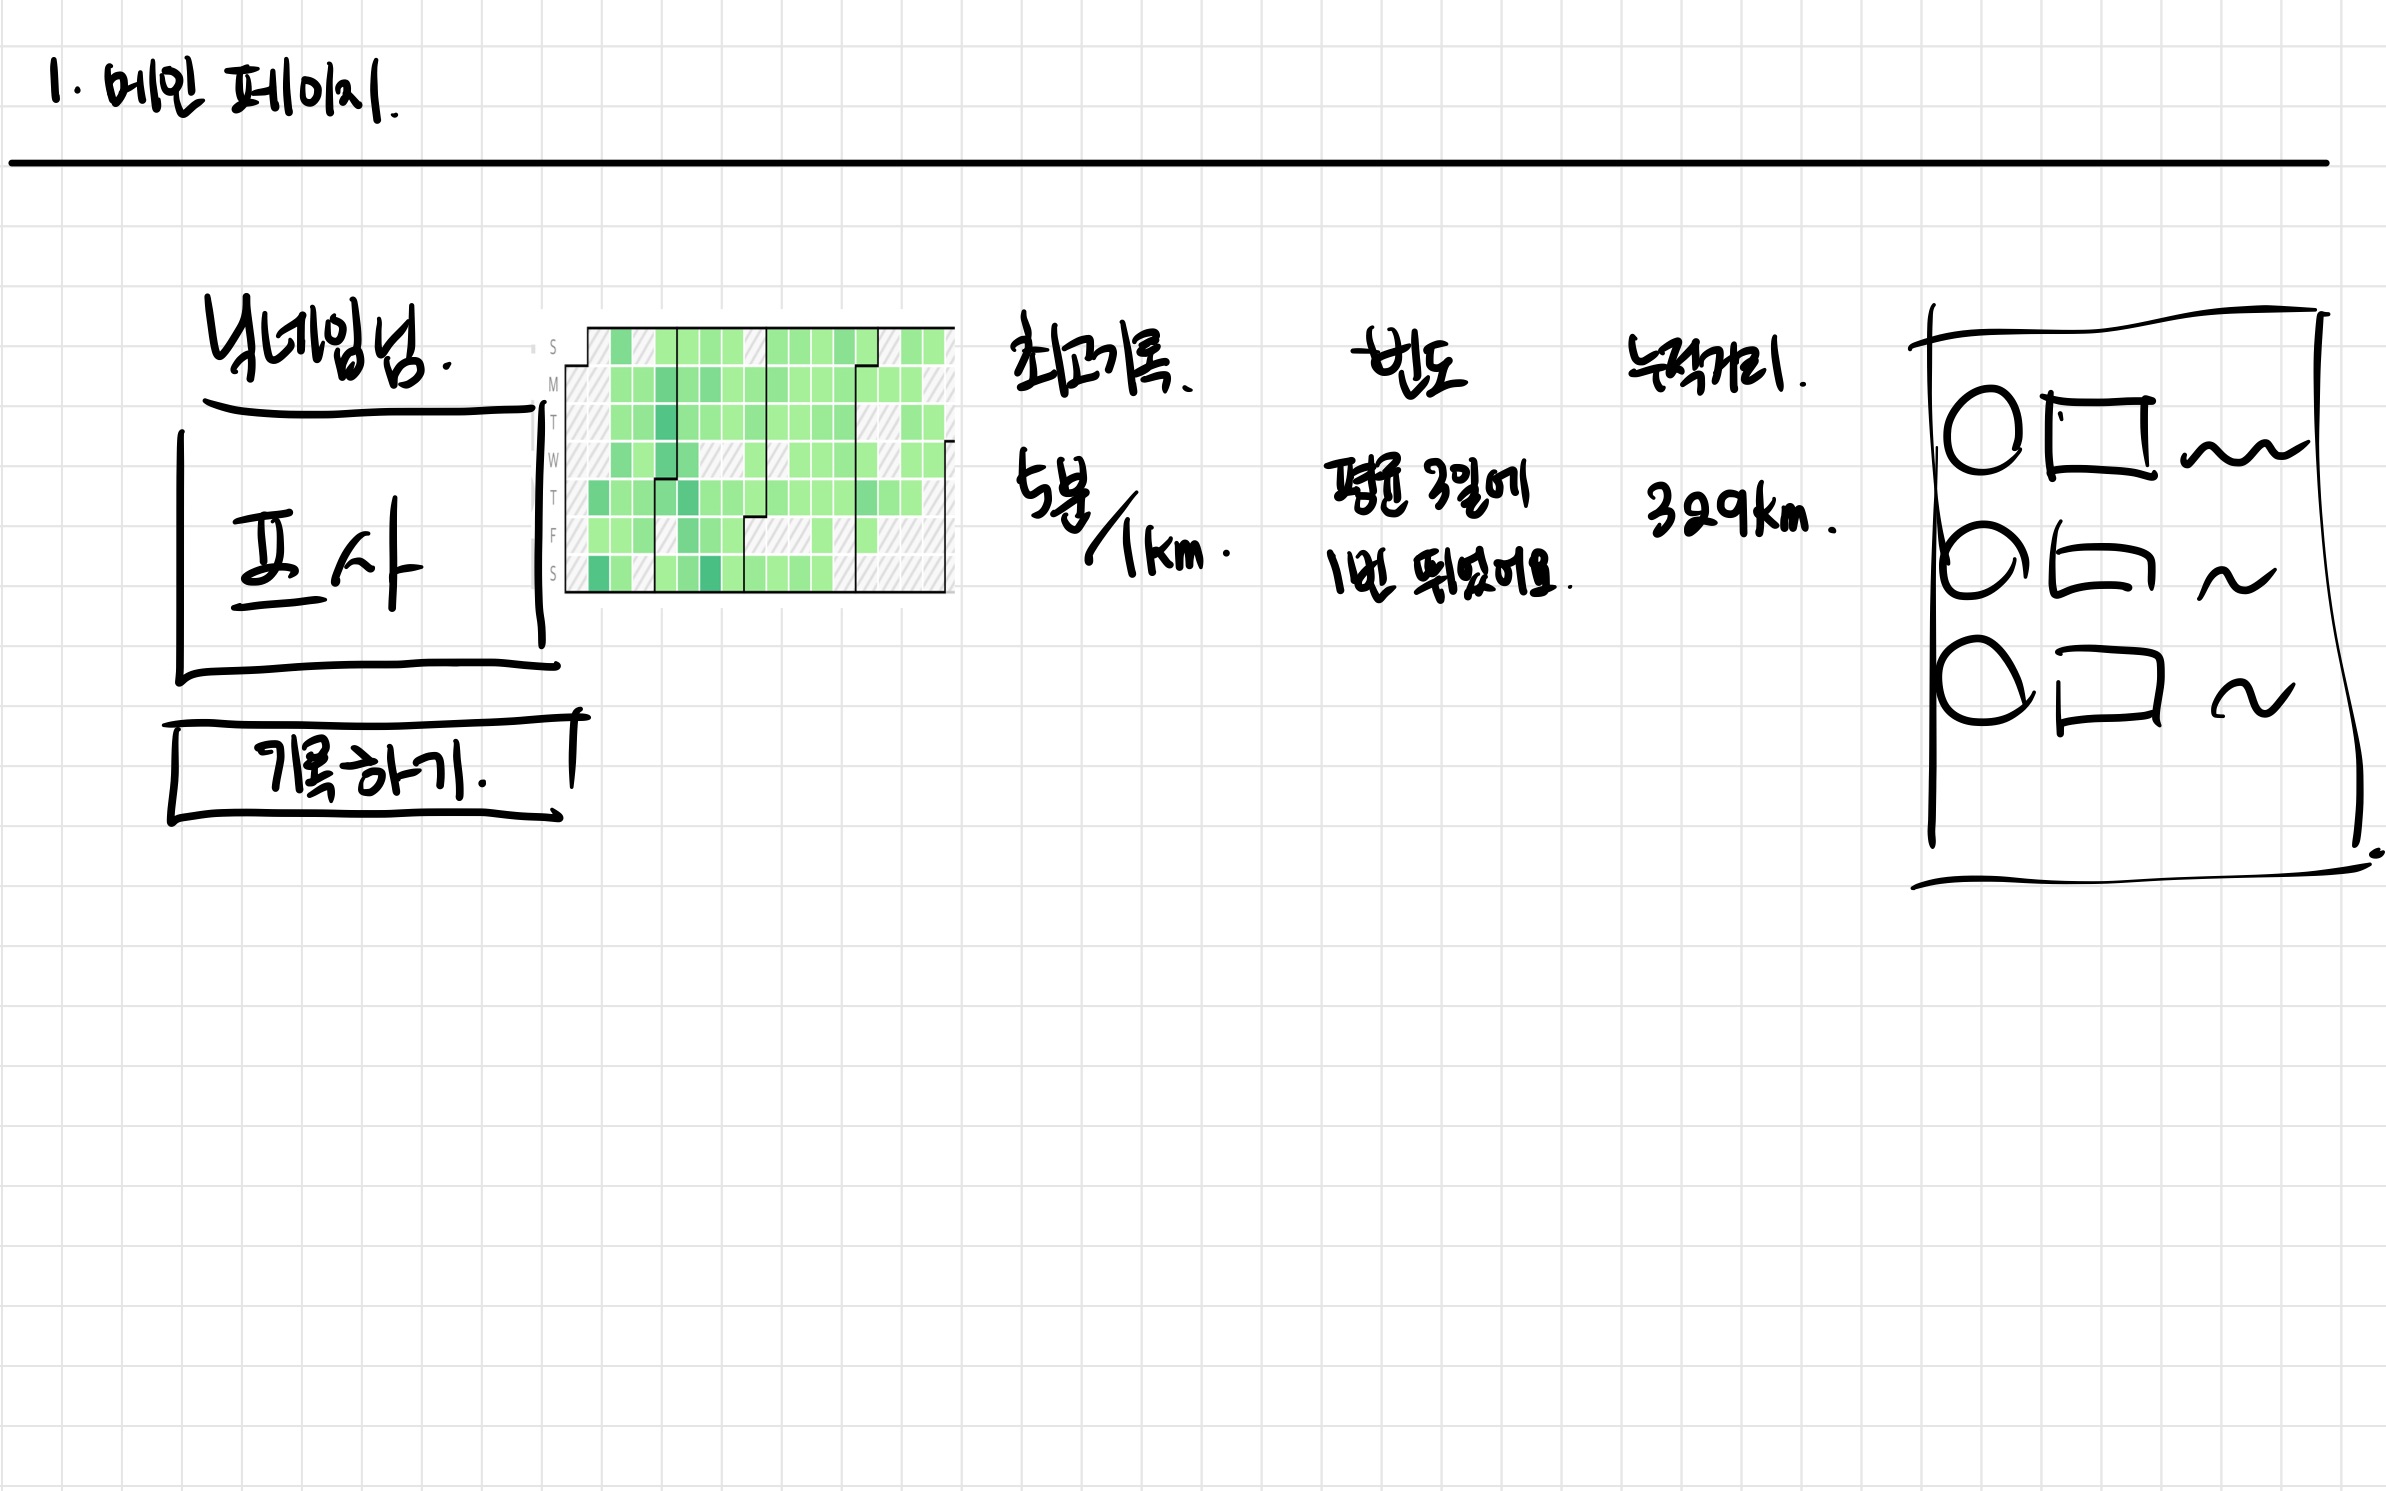 1. 메인 페이지.
닉네임넣.
프사
기록하기.
S
M
T
W
T
F
S
최고기록.
5분/1km.
빈도
평균 3일에
1번 뛰었어요.
누적거리.
329km.